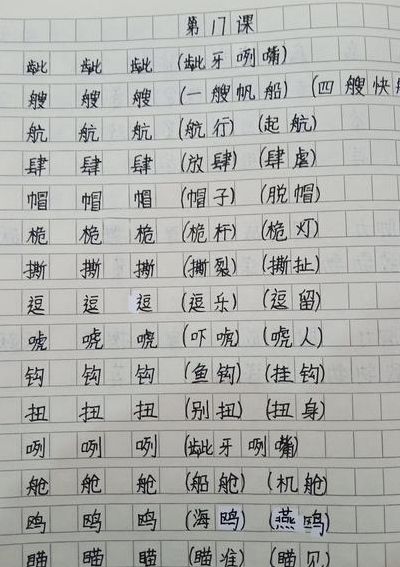 第17课
龇 龇 龇 (龇牙咧嘴)
艘 艘 艘 (一艘帆船) (四艘快
航 航 航 (航行) (起航)
肆 肆 肆 (放肆) (肆虐)
帽 帽 帽 (帽子) (脱帽)
桅 桅 桅 (桅杆) (桅灯)
撕 撕 撕 (撕裂) (撕扯)
逗 逗 逗 (逗乐) (逗留)
唬 唬 唬 (吓唬) (唬人)
钩 钩 钩 (鱼钩) (挂钩)
扭 扭 扭 (别扭) (扭身)
咧 咧 咧 (龇牙咧嘴)
舱 舱 舱 (船舱) (机舱)
鸥 鸥 鸥 (海鸥) (燕鸥)
瞄 瞄 瞄 (瞄准) (瞄见)